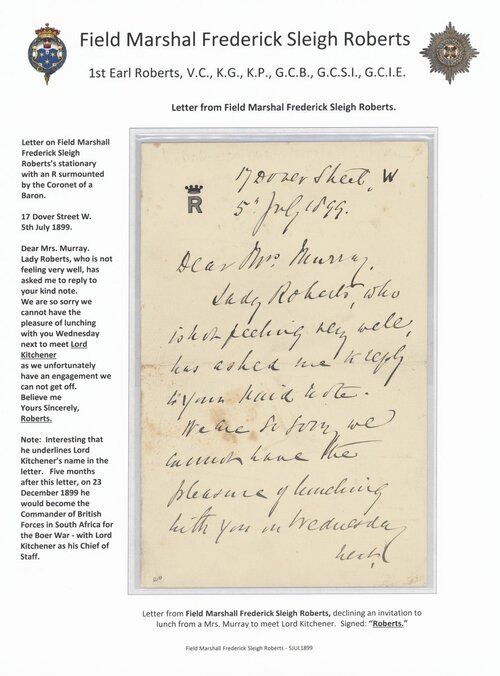 Field Marshal Frederick Sleigh Roberts
1st Earl Roberts, V.C., K.G., K.P., G.C.B., G.C.S.I., G.C.I.E.
Letter from Field Marshal Frederick Sleigh Roberts.
Letter on Field Marshall
Frederick Sleigh
Roberts's stationary
with an R surmounted
by the Coronet of a
Baron.
17 Dover Street W.
5th July 1899.
Dear Mrs. Murray.
Lady Roberts, who is not
feeling very well, has
asked me to reply to
your kind note.
We are so sorry we
cannot have the
pleasure of lunching
with you Wednesday
next to meet Lord
Kitchener
as we unfortunately
have an engagement we
can not get off.
Believe me
Yours Sincerely,
Roberts.
Note: Interesting that
he underlines Lord
Kitchener's name in the
letter. Five months
after this letter, on 23
December 1899 he
would become the
Commander of British
Forces in South Africa for
the Boer War - with Lord
Kitchener as his Chief of
Staff.
R
17 Dover Street, W
5th July 1899.
Dear Mrs. Murray,
Lady Roberts, who
is not feeling very well,
has asked me to reply
to your kind note.
We are so sorry we
cannot have the
pleasure of lunching
with you on Wednesday
next
Letter from Field Marshall Frederick Sleigh Roberts, declining an invitation to
lunch from a Mrs. Murray to meet Lord Kitchener. Signed: "Roberts."
Field Marshall Frederick Sleigh Roberts - 5JUL1899